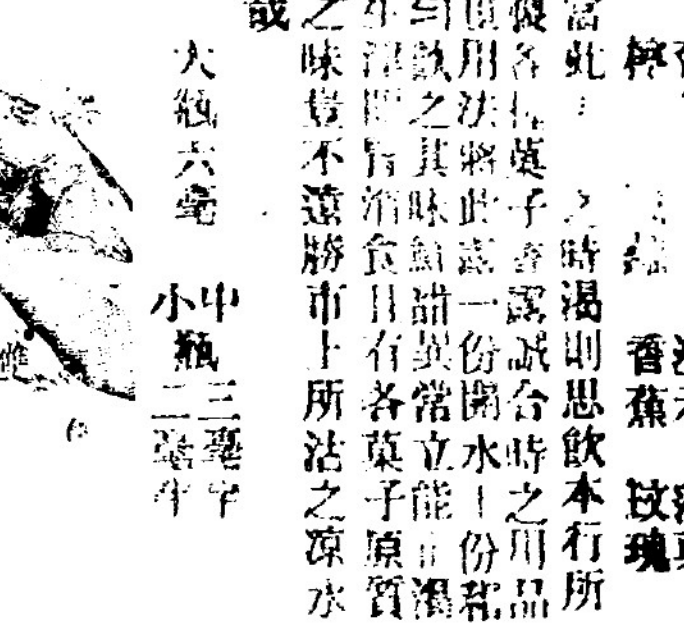 檸 香蕉 玫瑰
當此 之時渴則思飲本行所
備各種菓子香露誠合時之用品
也用法將此露一份開水十份和
勻飲之其味鮮甜異常立能止渴
生津開胃消食且有各菓子原質
之味豈不遠勝市上所沽之凉水
哉
大瓶六毫
中瓶三毫半
小瓶二毫半